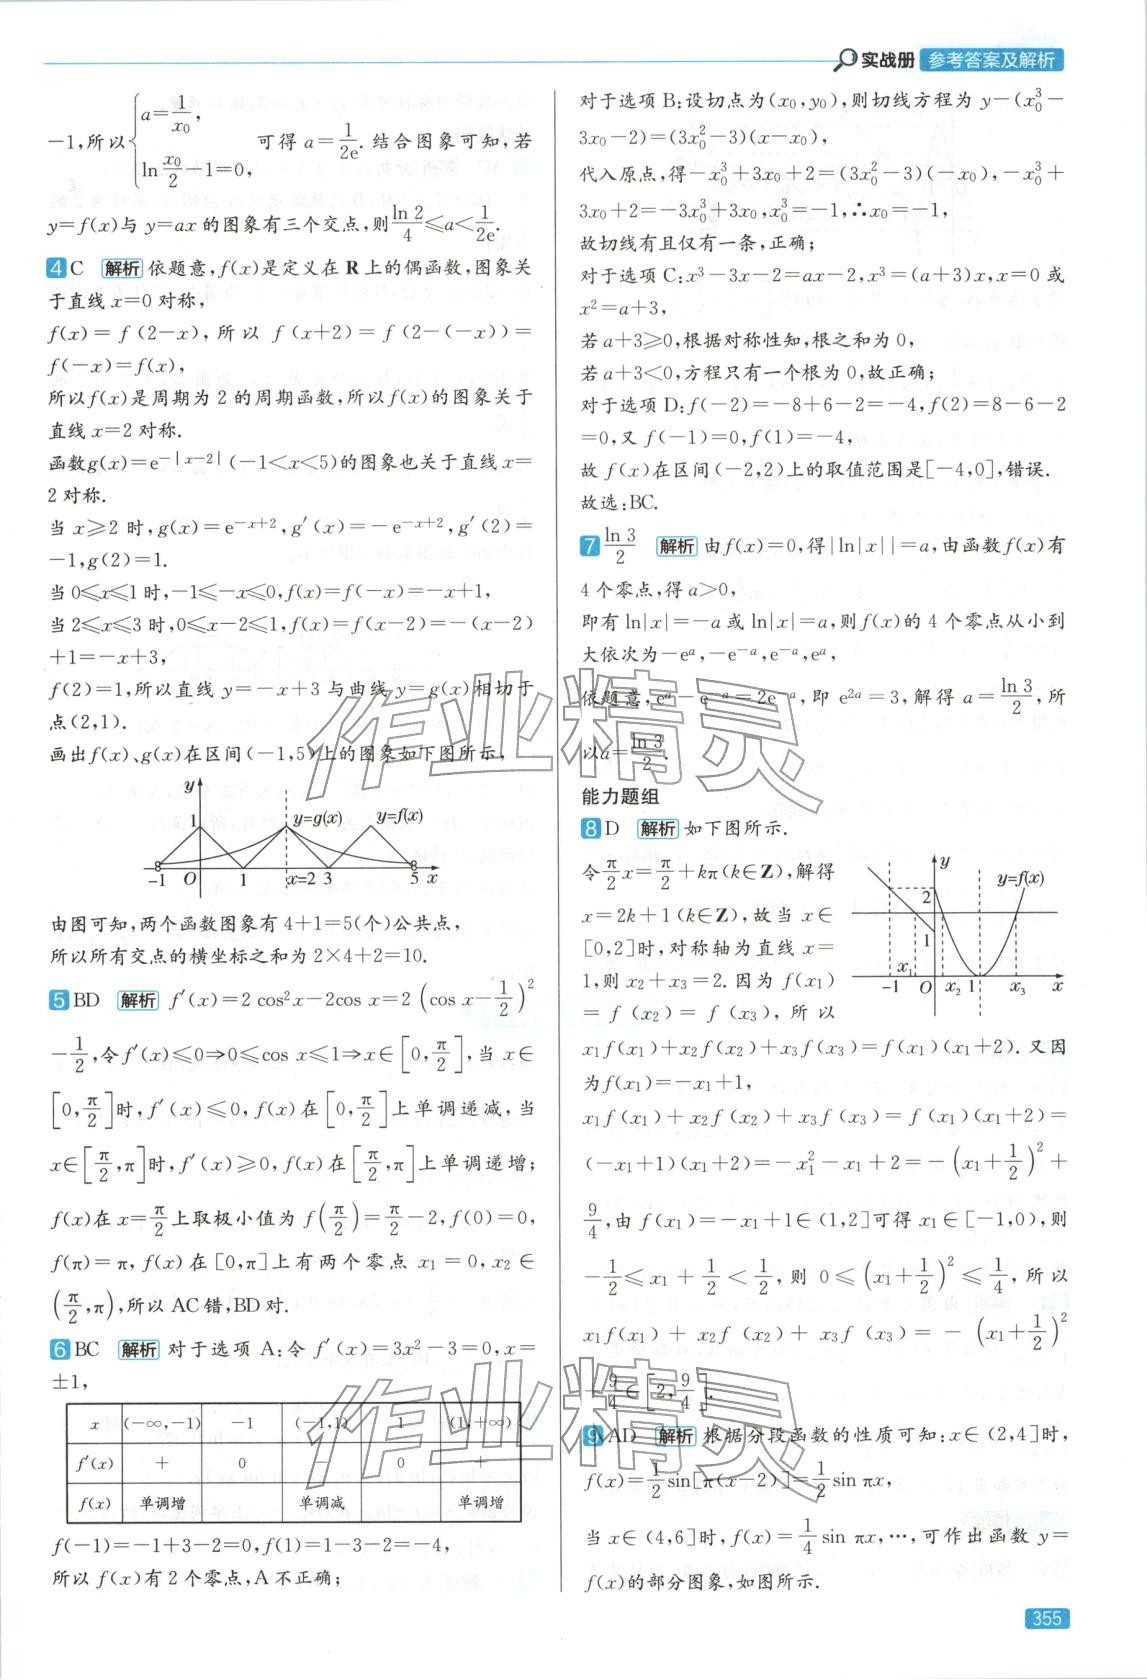 实战册 参考答案及解析
-1,所以{a=1/x₀, ln x₀/2 -1=0, 可得 a=1/2e.结合图象可知,若
y=f(x)与 y=ax 的图象有三个交点,则ln 2/4≤a<1/2e.
4 C 解析 依题意,f(x)是定义在 R 上的偶函数,图象关
于直线 x=0 对称,
f(x)=f(2-x),所以 f(x+2)=f(2-(-x))=
f(-x)=f(x),
所以f(x)是周期为 2 的周期函数,所以f(x)的图象关于
直线 x=2 对称.
函数g(x)=e^{-|x-2|}(-1<x<5)的图象也关于直线 x=
2 对称.
当 x≥2 时,g(x)=e^{-x+2},g′(x)=-e^{-x+2},g′(2)=
-1,g(2)=1.
当 0≤x≤1 时,-1≤-x≤0,f(x)=f(-x)=-x+1,
当 2≤x≤3 时,0≤x-2≤1,f(x)=f(x-2)=-(x-2)
+1=-x+3,
f(2)=1,所以直线 y=-x+3 与曲线 y=g(x)相切于
点(2,1).
画出f(x)、g(x)在区间(-1,5)上的图象如下图所示,
y
1 y=g(x) y=f(x)
-1 O 1 x=2 3 5 x
由图可知,两个函数图象有 4+1=5(个)公共点,
所以所有交点的横坐标之和为 2×4+2=10.
5 BD 解析 f′(x)=2 cos²x-2cos x=2(cos x-1/2)²
-1/2,令f′(x)≤0⇒0≤cos x≤1⇒x∈[0,π/2],当 x∈
[0,π/2]时,f′(x)≤0,f(x)在[0,π/2]上单调递减,当
x∈[π/2,π]时,f′(x)≥0,f(x)在[π/2,π]上单调递增;
f(x)在 x=π/2上取极小值为 f(π/2)=π/2-2,f(0)=0,
f(π)=π,f(x)在[0,π]上有两个零点 x₁=0,x₂∈
(π/2,π),所以 AC 错,BD 对.
6 BC 解析 对于选项 A:令 f′(x)=3x²-3=0,x=
±1,
x (-∞,-1) -1 (-1,1) 1 (1,+∞)
f′(x) + 0 0 +
f(x) 单调增 单调减 单调增
f(-1)=-1+3-2=0,f(1)=1-3-2=-4,
所以 f(x)有 2 个零点,A 不正确;
对于选项 B:设切点为(x₀,y₀),则切线方程为 y-(x₀³-
3x₀-2)=(3x₀²-3)(x-x₀),
代入原点,得-x₀³+3x₀+2=(3x₀²-3)(-x₀),-x₀³+
3x₀+2=-3x₀³+3x₀,x₀³=-1,∴x₀=-1,
故切线有且仅有一条,正确;
对于选项 C:x³-3x-2=ax-2,x³=(a+3)x,x=0 或
x²=a+3,
若 a+3≥0,根据对称性知,根之和为 0,
若 a+3<0,方程只有一个根为 0,故正确;
对于选项 D:f(-2)=-8+6-2=-4,f(2)=8-6-2
=0,又 f(-1)=0,f(1)=-4,
故 f(x)在区间(-2,2)上的取值范围是[-4,0],错误.
故选:BC.
7 ln 3/2 解析 由f(x)=0,得|ln|x||=a,由函数f(x)有
4 个零点,得 a>0,
即有 ln|x|=-a 或 ln|x|=a,则f(x)的 4 个零点从小到
大依次为-eᵃ,-e⁻ᵃ,e⁻ᵃ,eᵃ,
依题意,eᵃ-e⁻ᵃ=2e⁻ᵃ,即 e²ᵃ=3,解得 a=ln 3/2,所
以a=ln 3/2.
能力题组
8 D 解析 如下图所示.
令π/2x=π/2+kπ(k∈Z),解得
x=2k+1(k∈Z),故当 x∈
[0,2]时,对称轴为直线 x=
1,则 x₂+x₃=2.因为 f(x₁)
=f(x₂)=f(x₃),所以
y
2 y=f(x)
1
x₁
-1 O x₂ 1 x₃ x
x₁f(x₁)+x₂f(x₂)+x₃f(x₃)=f(x₁)(x₁+2).又因
为f(x₁)=-x₁+1,
x₁f(x₁)+x₂f(x₂)+x₃f(x₃)=f(x₁)(x₁+2)=
(-x₁+1)(x₁+2)=-x₁²-x₁+2=-(x₁+1/2)²+
9/4,由 f(x₁)=-x₁+1∈(1,2]可得 x₁∈[-1,0),则
-1/2≤x₁+1/2<1/2,则 0≤(x₁+1/2)²≤1/4,所以
x₁f(x₁)+x₂f(x₂)+x₃f(x₃)=-(x₁+1/2)²
+9/4∈[2,9/4].
9 AD 解析 根据分段函数的性质可知:x∈(2,4]时,
f(x)=1/2sin[π(x-2)]=1/2sin πx,
当 x∈(4,6]时,f(x)=1/4sin πx,…,可作出函数 y=
f(x)的部分图象,如图所示.
355
作业精灵
作业精灵